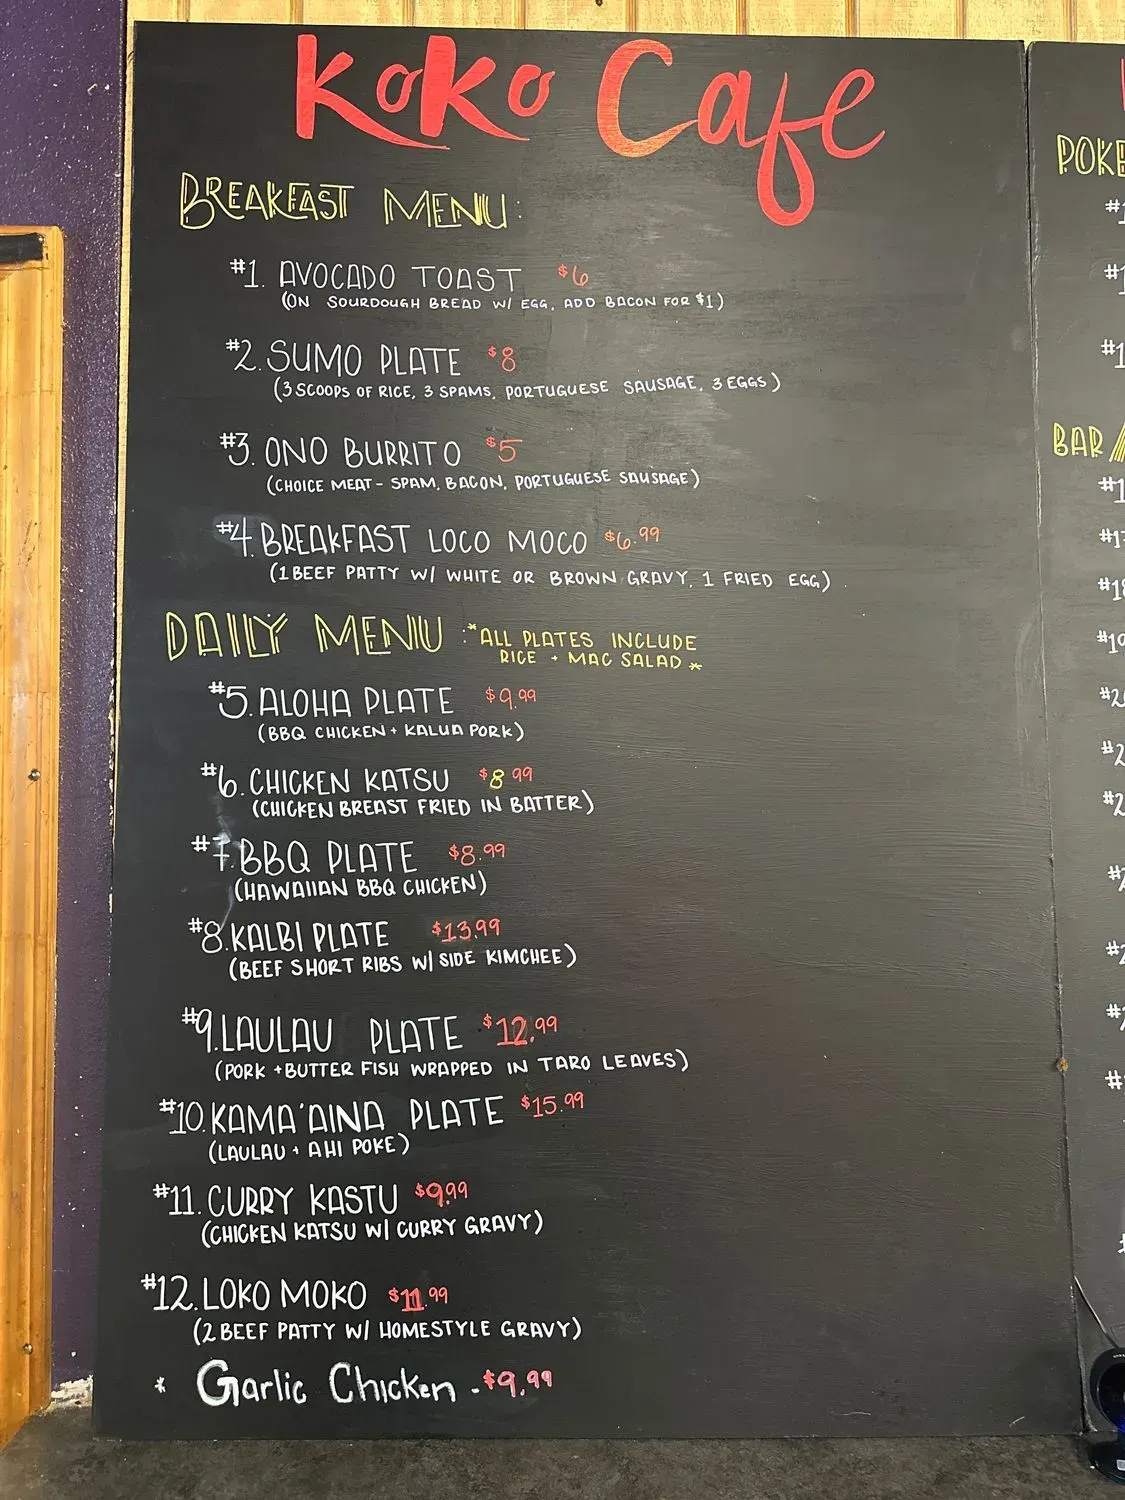 Koko Cafe
BREAKFAST MENU:
#1. AVOCADO TOAST $6
(ON SOURDOUGH BREAD W/ EGG, ADD BACON FOR $1)
#2. SUMO PLATE $8
(3 SCOOPS OF RICE, 3 SPAMS, PORTUGUESE SAUSAGE, 3 EGGS)
#3. ONO BURRITO $5
(CHOICE MEAT - SPAM, BACON, PORTUGUESE SAUSAGE)
#4. BREAKFAST LOCO MOCO $6.99
(1 BEEF PATTY W/ WHITE OR BROWN GRAVY, 1 FRIED EGG)
DAILY MENU : *ALL PLATES INCLUDE
RICE + MAC SALAD *
#5. ALOHA PLATE $9.99
(BBQ CHICKEN + KALUA PORK)
#6. CHICKEN KATSU $8.99
(CHICKEN BREAST FRIED IN BATTER)
#7. BBQ PLATE $8.99
(HAWAIIAN BBQ CHICKEN)
#8. KALBI PLATE $13.99
(BEEF SHORT RIBS W/ SIDE KIMCHEE)
#9. LAULAU PLATE $12.99
(PORK + BUTTER FISH WRAPPED IN TARO LEAVES)
#10. KAMA'AINA PLATE $15.99
(LAULAU + AHI POKE)
#11. CURRY KASTU $9.99
(CHICKEN KATSU W/ CURRY GRAVY)
#12. LOKO MOKO $11.99
(2 BEEF PATTY W/ HOMESTYLE GRAVY)
* Garlic Chicken - $9.99
POKE
BAR/